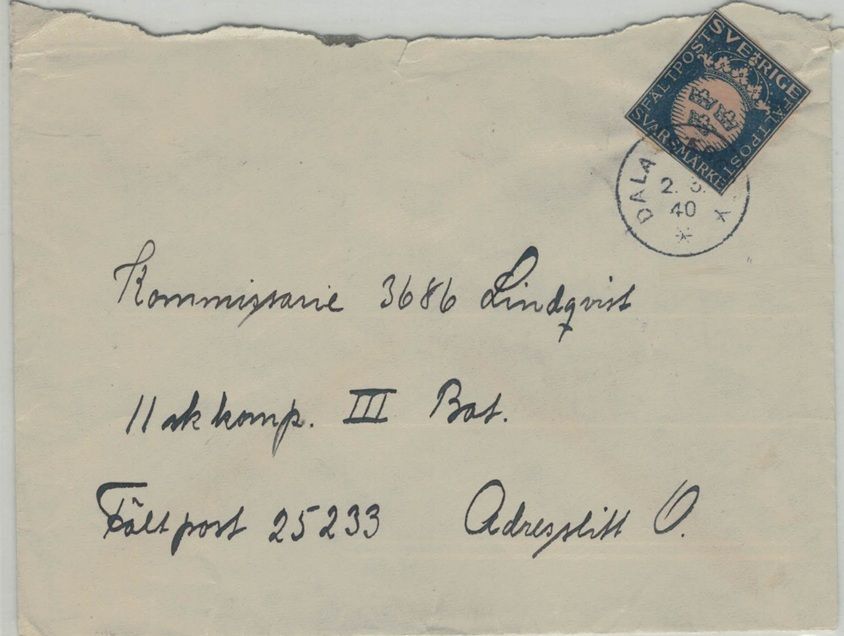 SVERIGE
FÄLTPOST
FÄLTPOST
SVARSMÄRKE
DALA
2. 3.
40
Kommissarie 3686 Lindqvist
11 sk komp. III Bat.
Fältpost 25233 Adresslitt O.